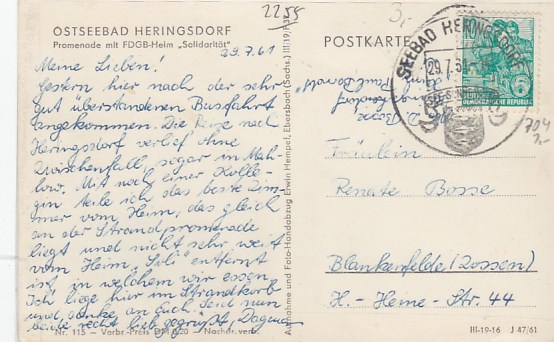 2255
3,-
OSTSEEBAD HERINGSDORF
Promenade mit FDGB-Heim „Solidarität"
29.7.61
Meine Lieben!
Gestern hier nach der sehr
gut überstandenen Busfahrt
angekommen. Die Reise nach
Heringsdorf verlief ohne
Zwischenfall, sogar in Mah-
low. Mit noch einer Kolle-
gin teile ich das beste Zim-
mer vom Heim, das gleich
an der Strandpromenade
liegt und nicht sehr weit
vom Heim „Soli" entfernt
ist, in welchem wir essen.
Ich liege hier im Strandkorb
und denke an Euch. Seid nun
beide recht lieb gegrüßt, Dagmar
Nr. 115 - Verbr.-Preis DM 0,20 - Nachdr. verb.
Aufnahme und Foto-Handabzug Erwin Hempel, Ebersbach (Sachs.) III/19/
POSTKARTE
SEEBAD HERINGSDORF
29.7.61
DEUTSCHE
DEMOKRATISCHE REPUBLIK
6
704
Fräulein
Renate Bosse
Blankenfelde (Zossen)
H.-Heine-Str. 44
III-19-16 J 47/61